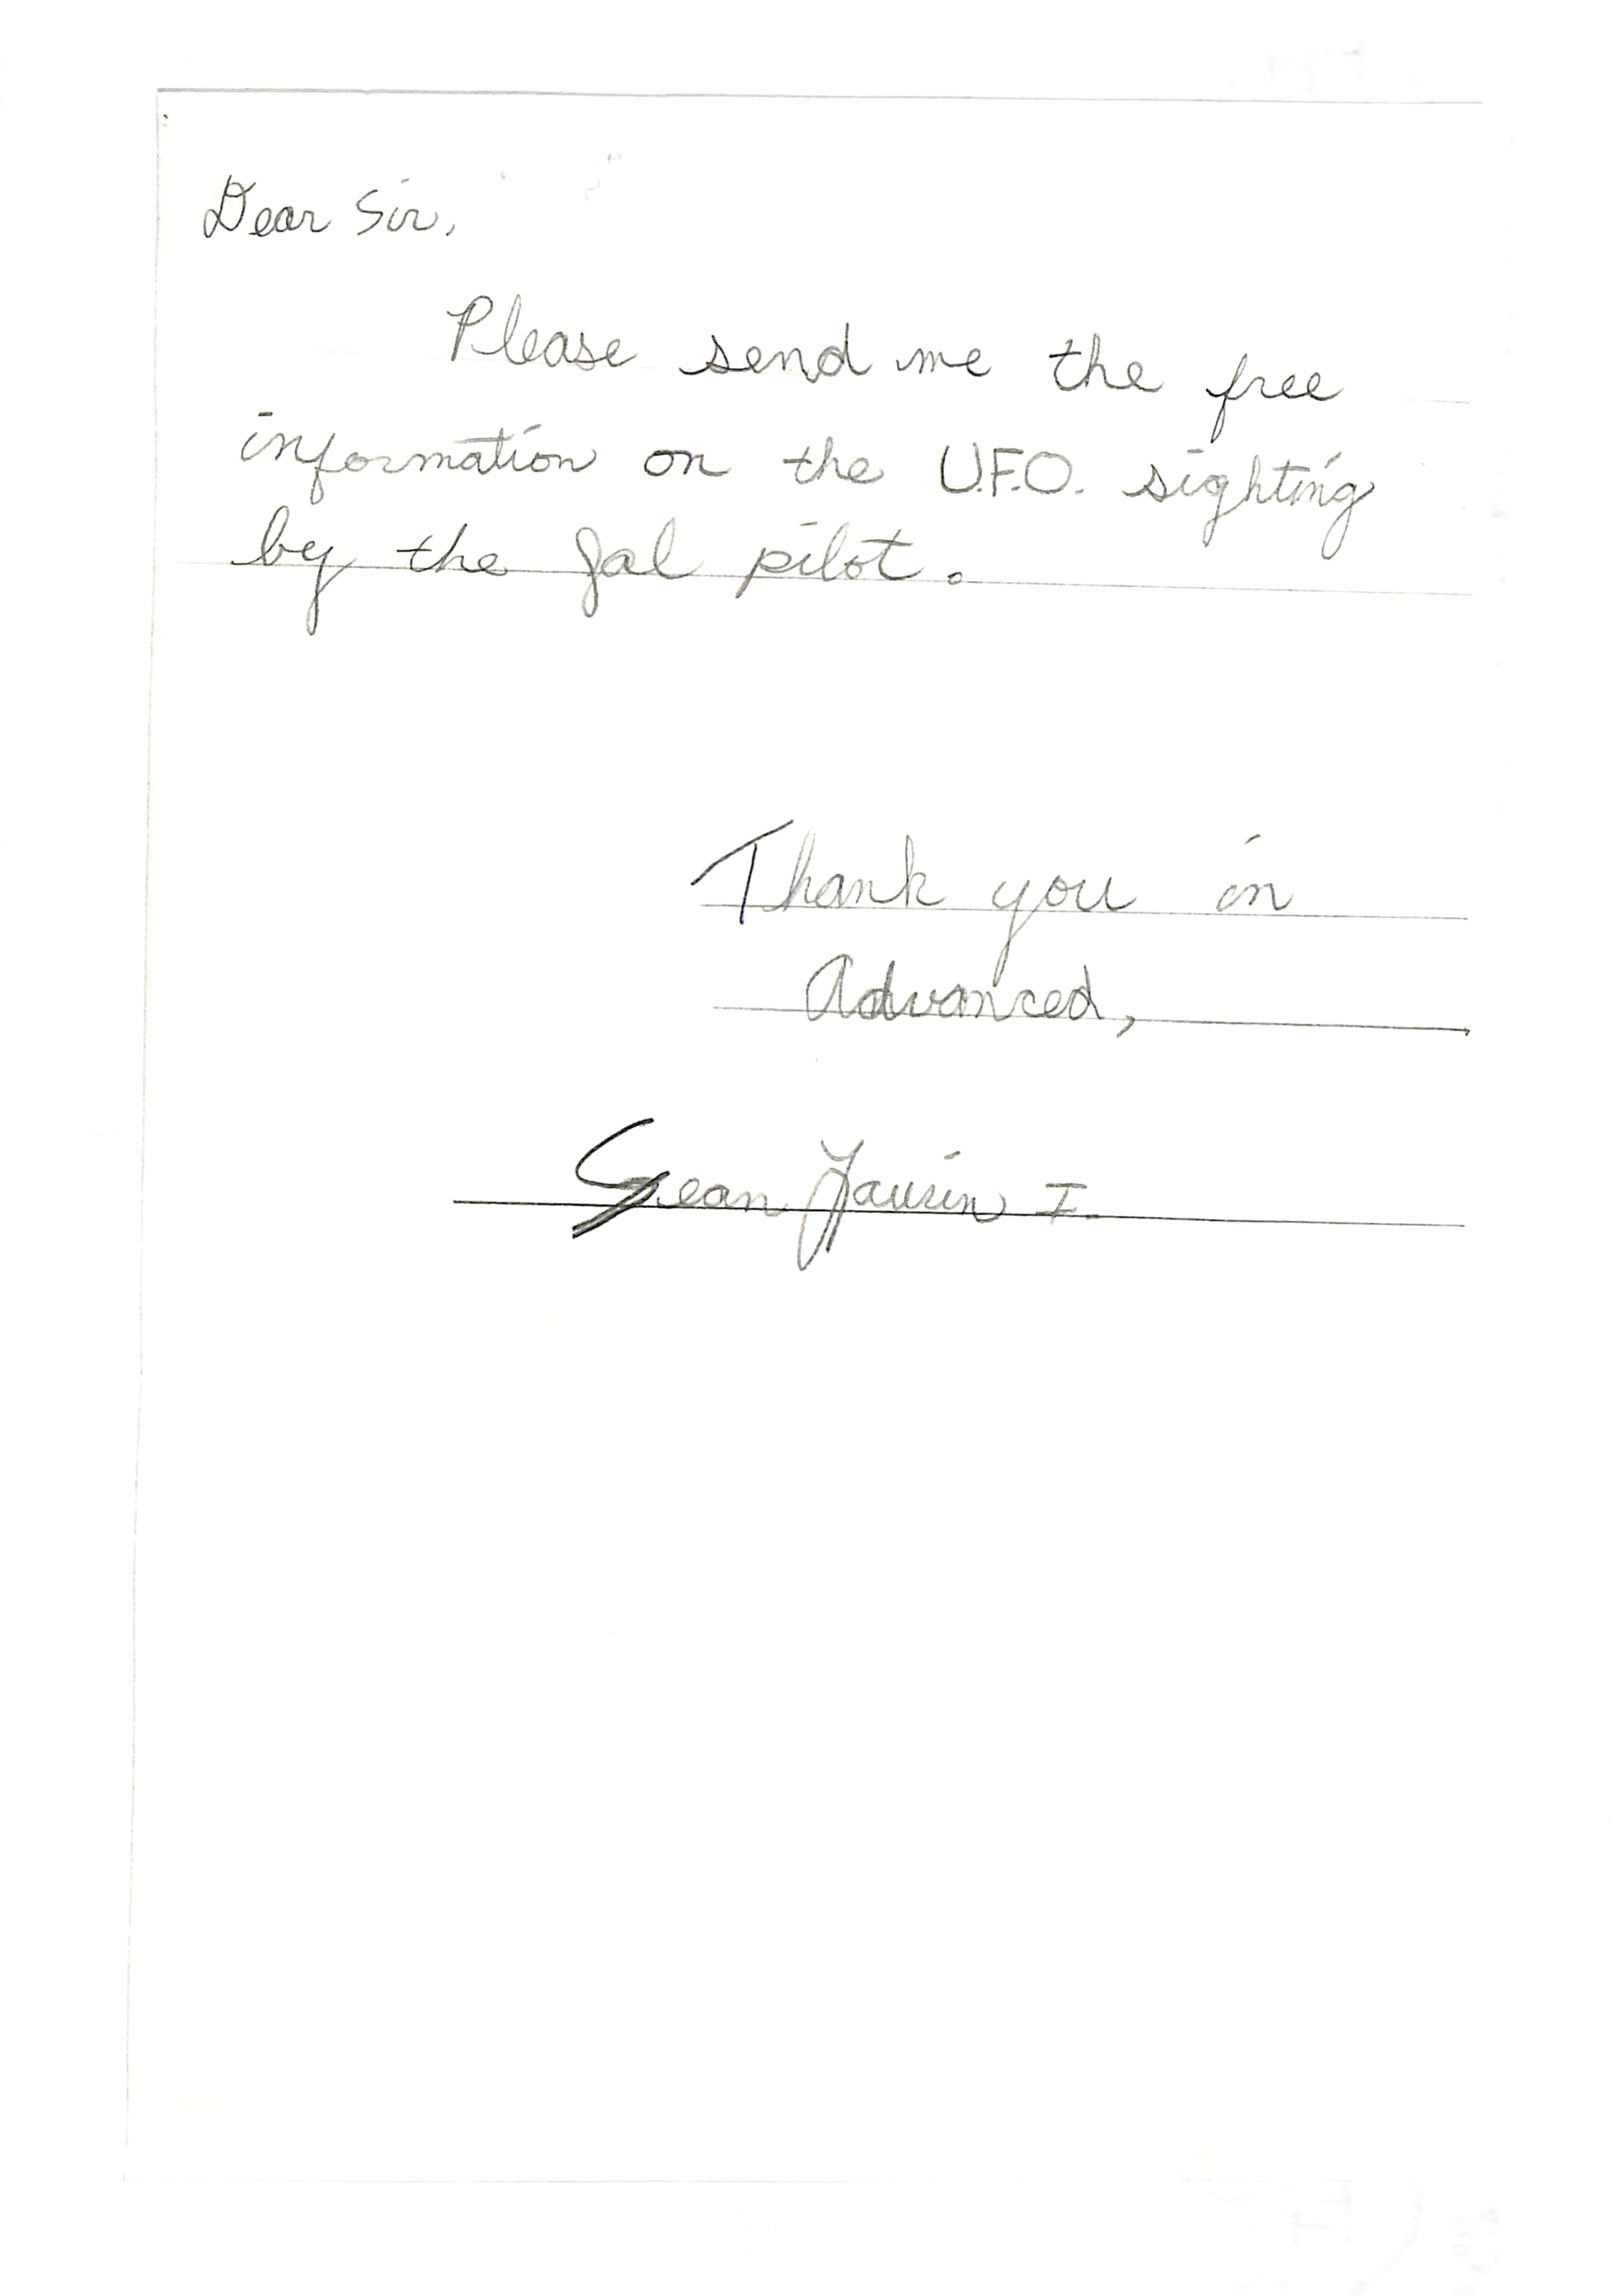 Dear Sir,
Please send me the free
information on the U.F.O. sighting
by the Jal pilot.
Thank you in
Advanced,
Sean I.